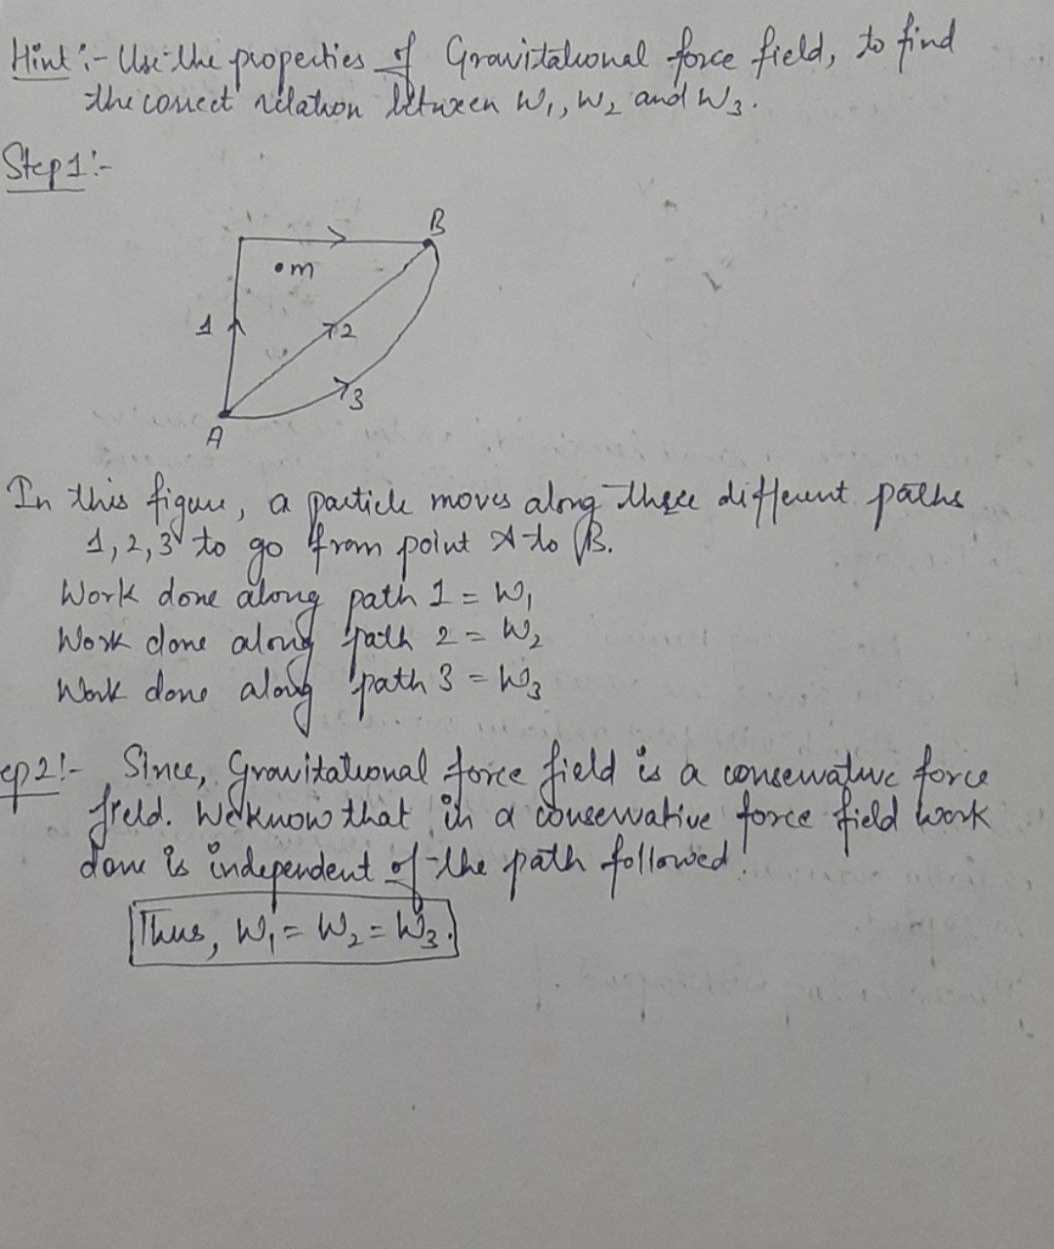 Hint :- Use the properties of Gravitational force field, to find
the correct relation between W₁, W₂ and W₃.
Step 1 :-
B
•m
1
2
3
A
In this figure, a particle moves along three different paths
1, 2, 3 to go from point A to B.
Work done along path 1 = W₁
Work done along path 2 = W₂
Work done along path 3 = W₃
ep 2 :- Since, Gravitational force field is a conservative force
field. We know that in a conservative force field work
done is independent of the path followed.
Thus, W₁ = W₂ = W₃.